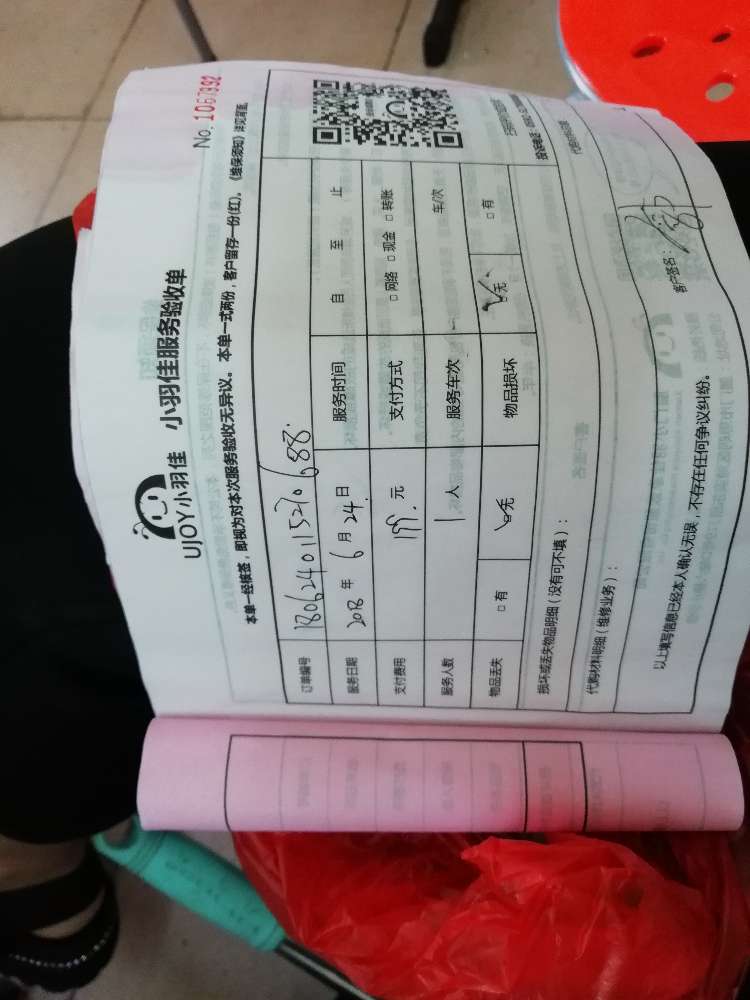 No. 1067992
UJOY小羽佳 小羽佳服务验收单
本单一经核签，即视为对本次服务验收无异议。本单一式两份，客户留存一份(红)。《维保须知》详见背面。
订单编号 1806240115270688
服务日期 2018 年 6 月 24 日 服务时间 自 至 止
支付费用 199 元 支付方式 □ 网络 □ 现金 □ 转账
服务人数 1 人 服务车次 车/次
物品丢失 □ 有 □ 无 物品损坏 □ 无 □ 有
损坏或丢失物品明细（没有可不填）：
代购材料明细（维修业务）：
以上填写信息已经本人确认无误，不存在任何争议纠纷。
客户签名：